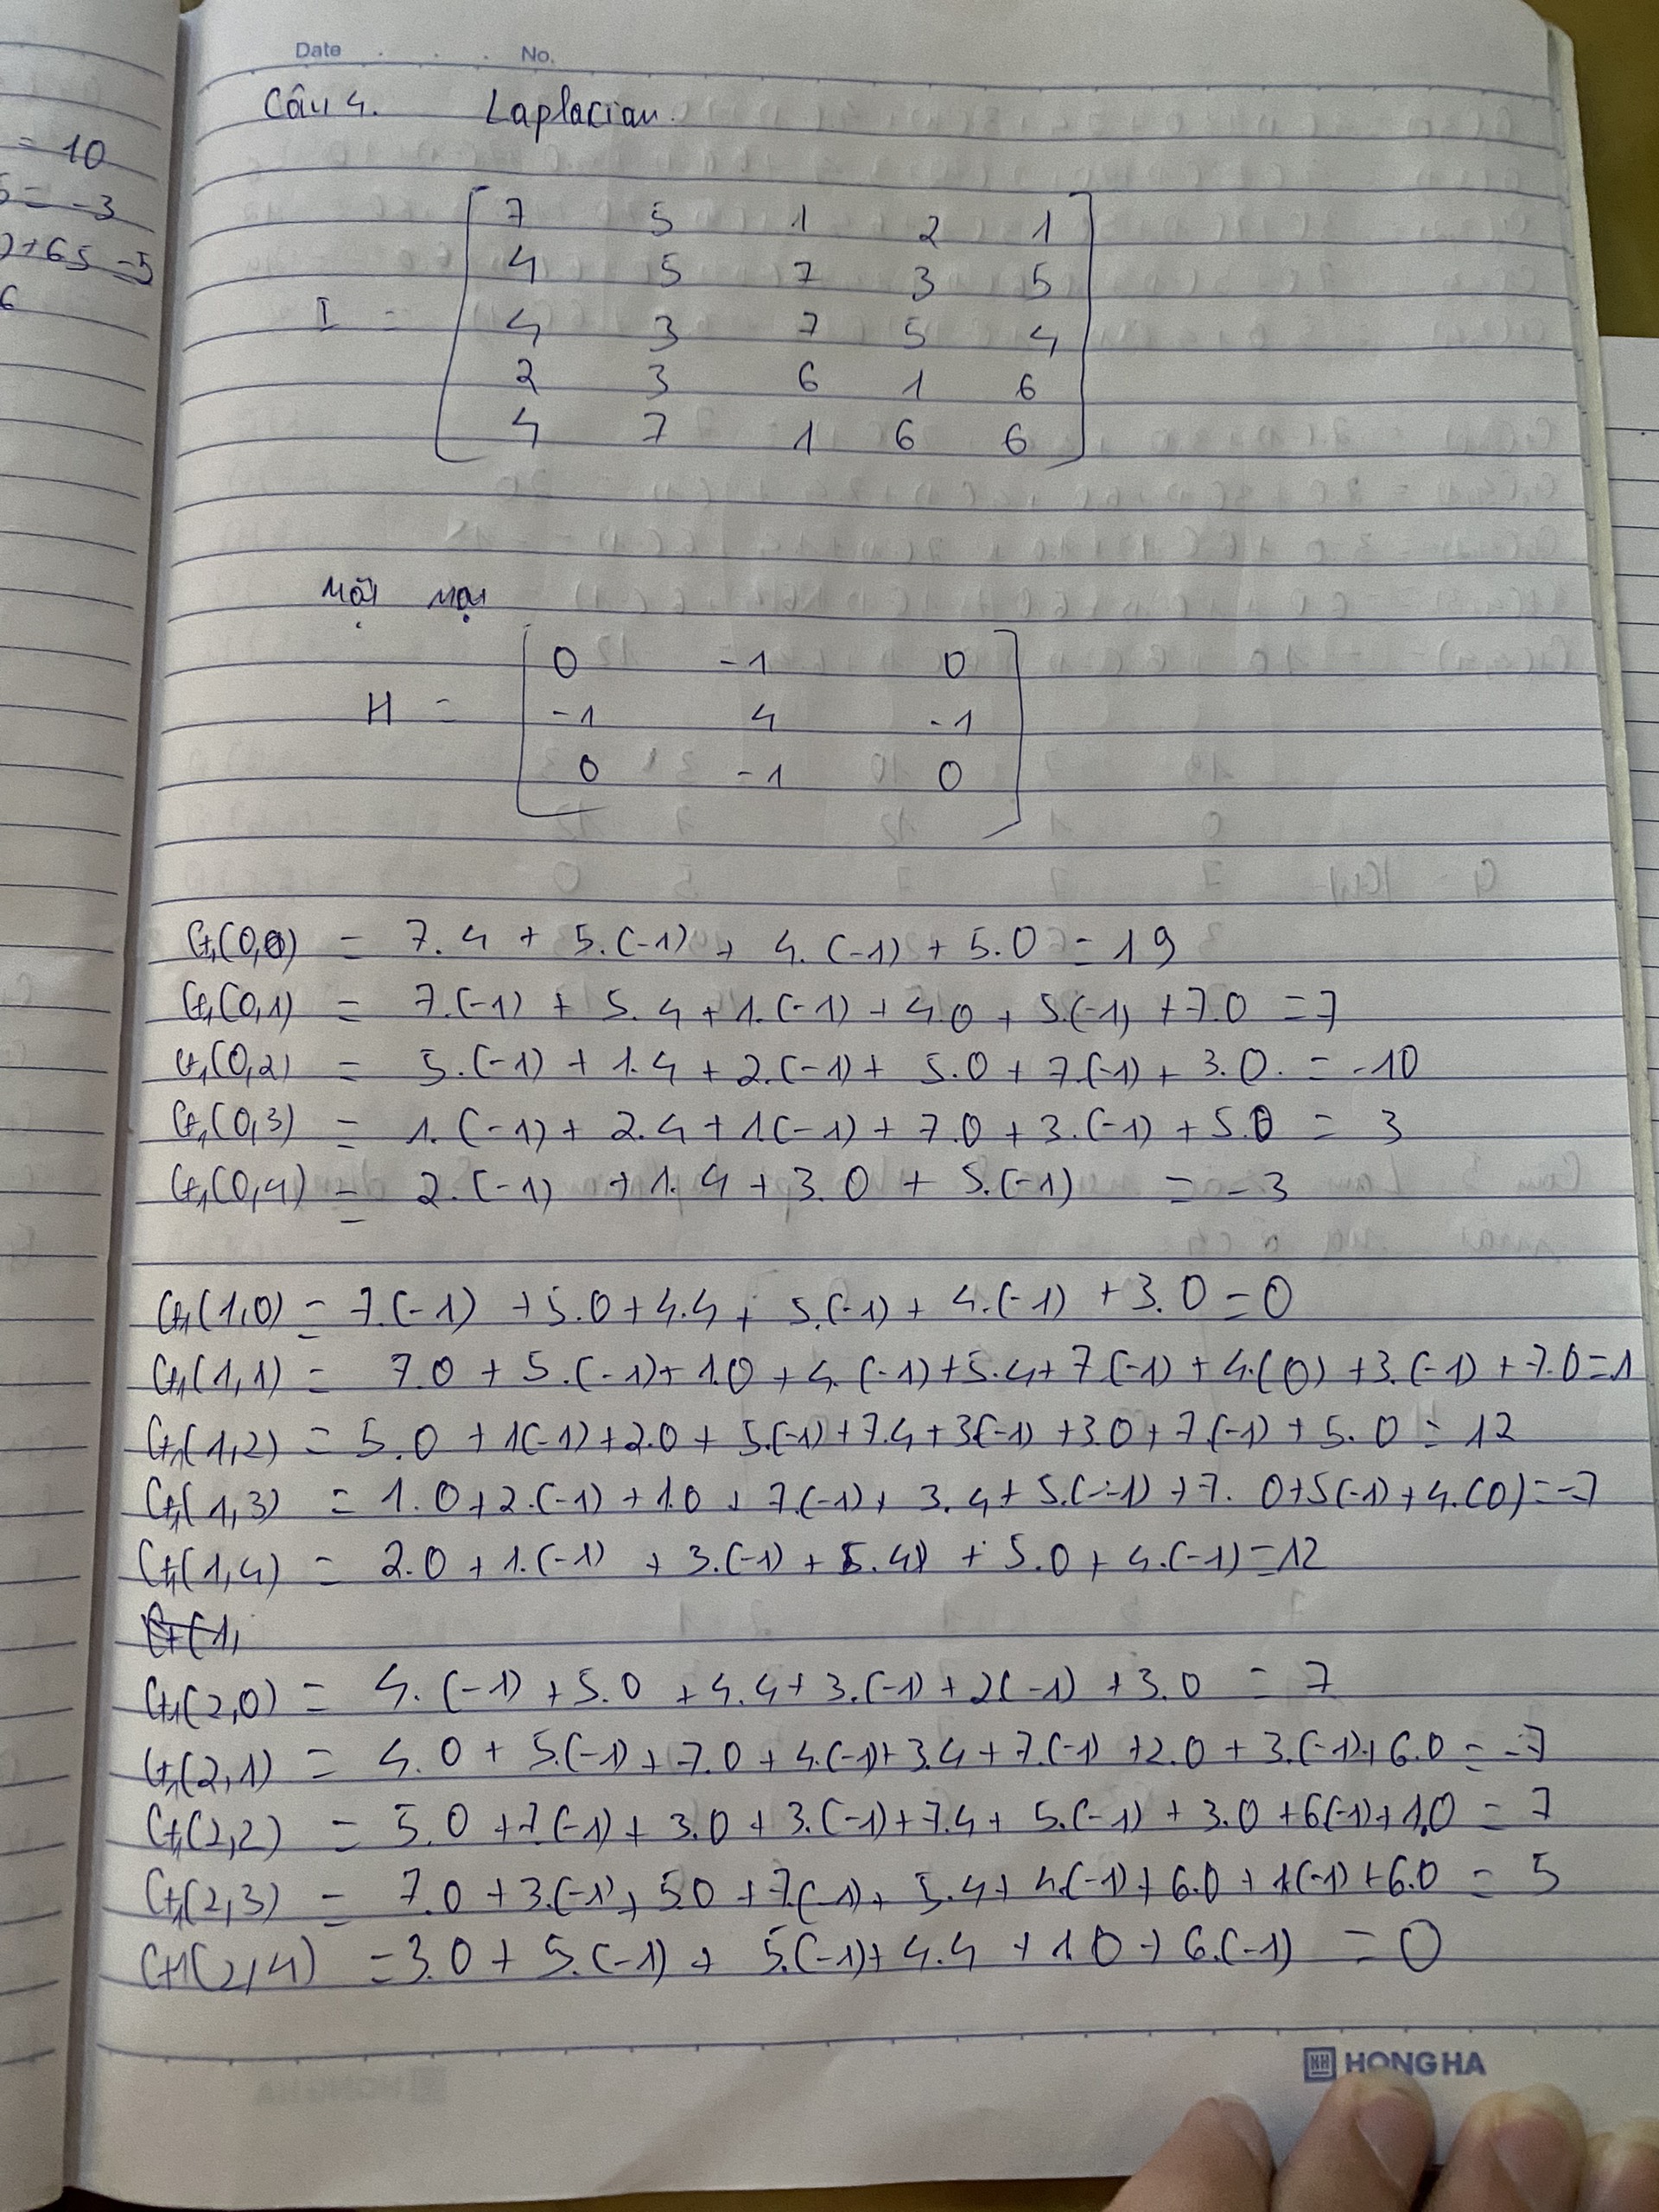 = 10
5 = -3
)+65 = 5
6
Date No.
Câu 4. Laplacian.
7 5 1 2 1
4 5 7 3 5
I = 4 3 7 5 4
2 3 6 1 6
4 7 1 6 6
0 -1 0
H = -1 4 -1
0 -1 0
G1(0,0) = 7.4 + 5.(-1) + 4.(-1) + 5.0 = 19
G1(0,1) = 7.(-1) + 5.4 + 1.(-1) + 4.0 + 5.(-1) + 7.0 = 7
G1(0,2) = 5.(-1) + 1.4 + 2.(-1) + 5.0 + 7.(-1) + 3.0. = -10
G1(0,3) = 1.(-1) + 2.4 + 1(-1) + 7.0 + 3.(-1) + 5.0 = 3
G1(0,4) = 2.(-1) + 1.4 + 3.0 + 5.(-1) = -3
G1(1,0) = 7.(-1) + 5.0 + 4.4 + 5.(-1) + 4.(-1) + 3.0 = 0
G1(1,1) = 7.0 + 5.(-1) + 1.0 + 4.(-1) + 5.4 + 7.(-1) + 4.(0) + 3.(-1) + 7.0 = 1
G1(1,2) = 5.0 + 1(-1) + 2.0 + 5.(-1) + 7.4 + 3(-1) + 3.0 + 7.(-1) + 5.0 = 12
G1(1,3) = 1.0 + 2.(-1) + 1.0 + 7.(-1) + 3.4 + 5.(-1) + 7.0 + 5(-1) + 4.(0) = -7
G1(1,4) = 2.0 + 1.(-1) + 3.(-1) + 5.4) + 5.0 + 4.(-1) = 12
G1(1,
G1(2,0) = 4.(-1) + 5.0 + 4.4 + 3.(-1) + 2(-1) + 3.0 = 7
G1(2,1) = 4.0 + 5.(-1) + 7.0 + 4.(-1) + 3.4 + 7.(-1) + 2.0 + 3.(-1) + 6.0 = -7
G1(2,2) = 5.0 + 7.(-1) + 3.0 + 3.(-1) + 7.4 + 5.(-1) + 3.0 + 6(-1) + 1.0 = 7
G1(2,3) = 7.0 + 3.(-1) + 5.0 + 7.(-1) + 5.4 + 4.(-1) + 6.0 + 1(-1) + 6.0 = 5
G1(2,4) = 3.0 + 5.(-1) + 5.(-1) + 4.4 + 1.0 + 6.(-1) = 0
HH HONG HA